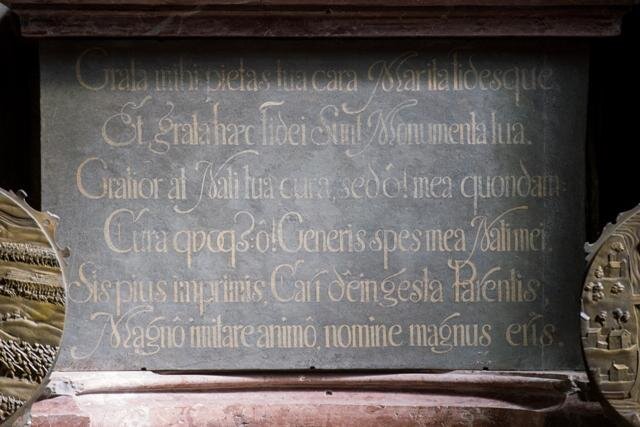 Grata mihi pietas tua cara Marita fidesque
Et grata hæc fidei Sunt Monumenta tua.
Gratior at Nati tua cura, sed ô! mea quondam:
Cura quoq3 ô! Generis spes mea Nati mei.
Sis pius inprimis, Cari dêin gesta Parentis,
Magnô imitare animô, nomine magnus eris.